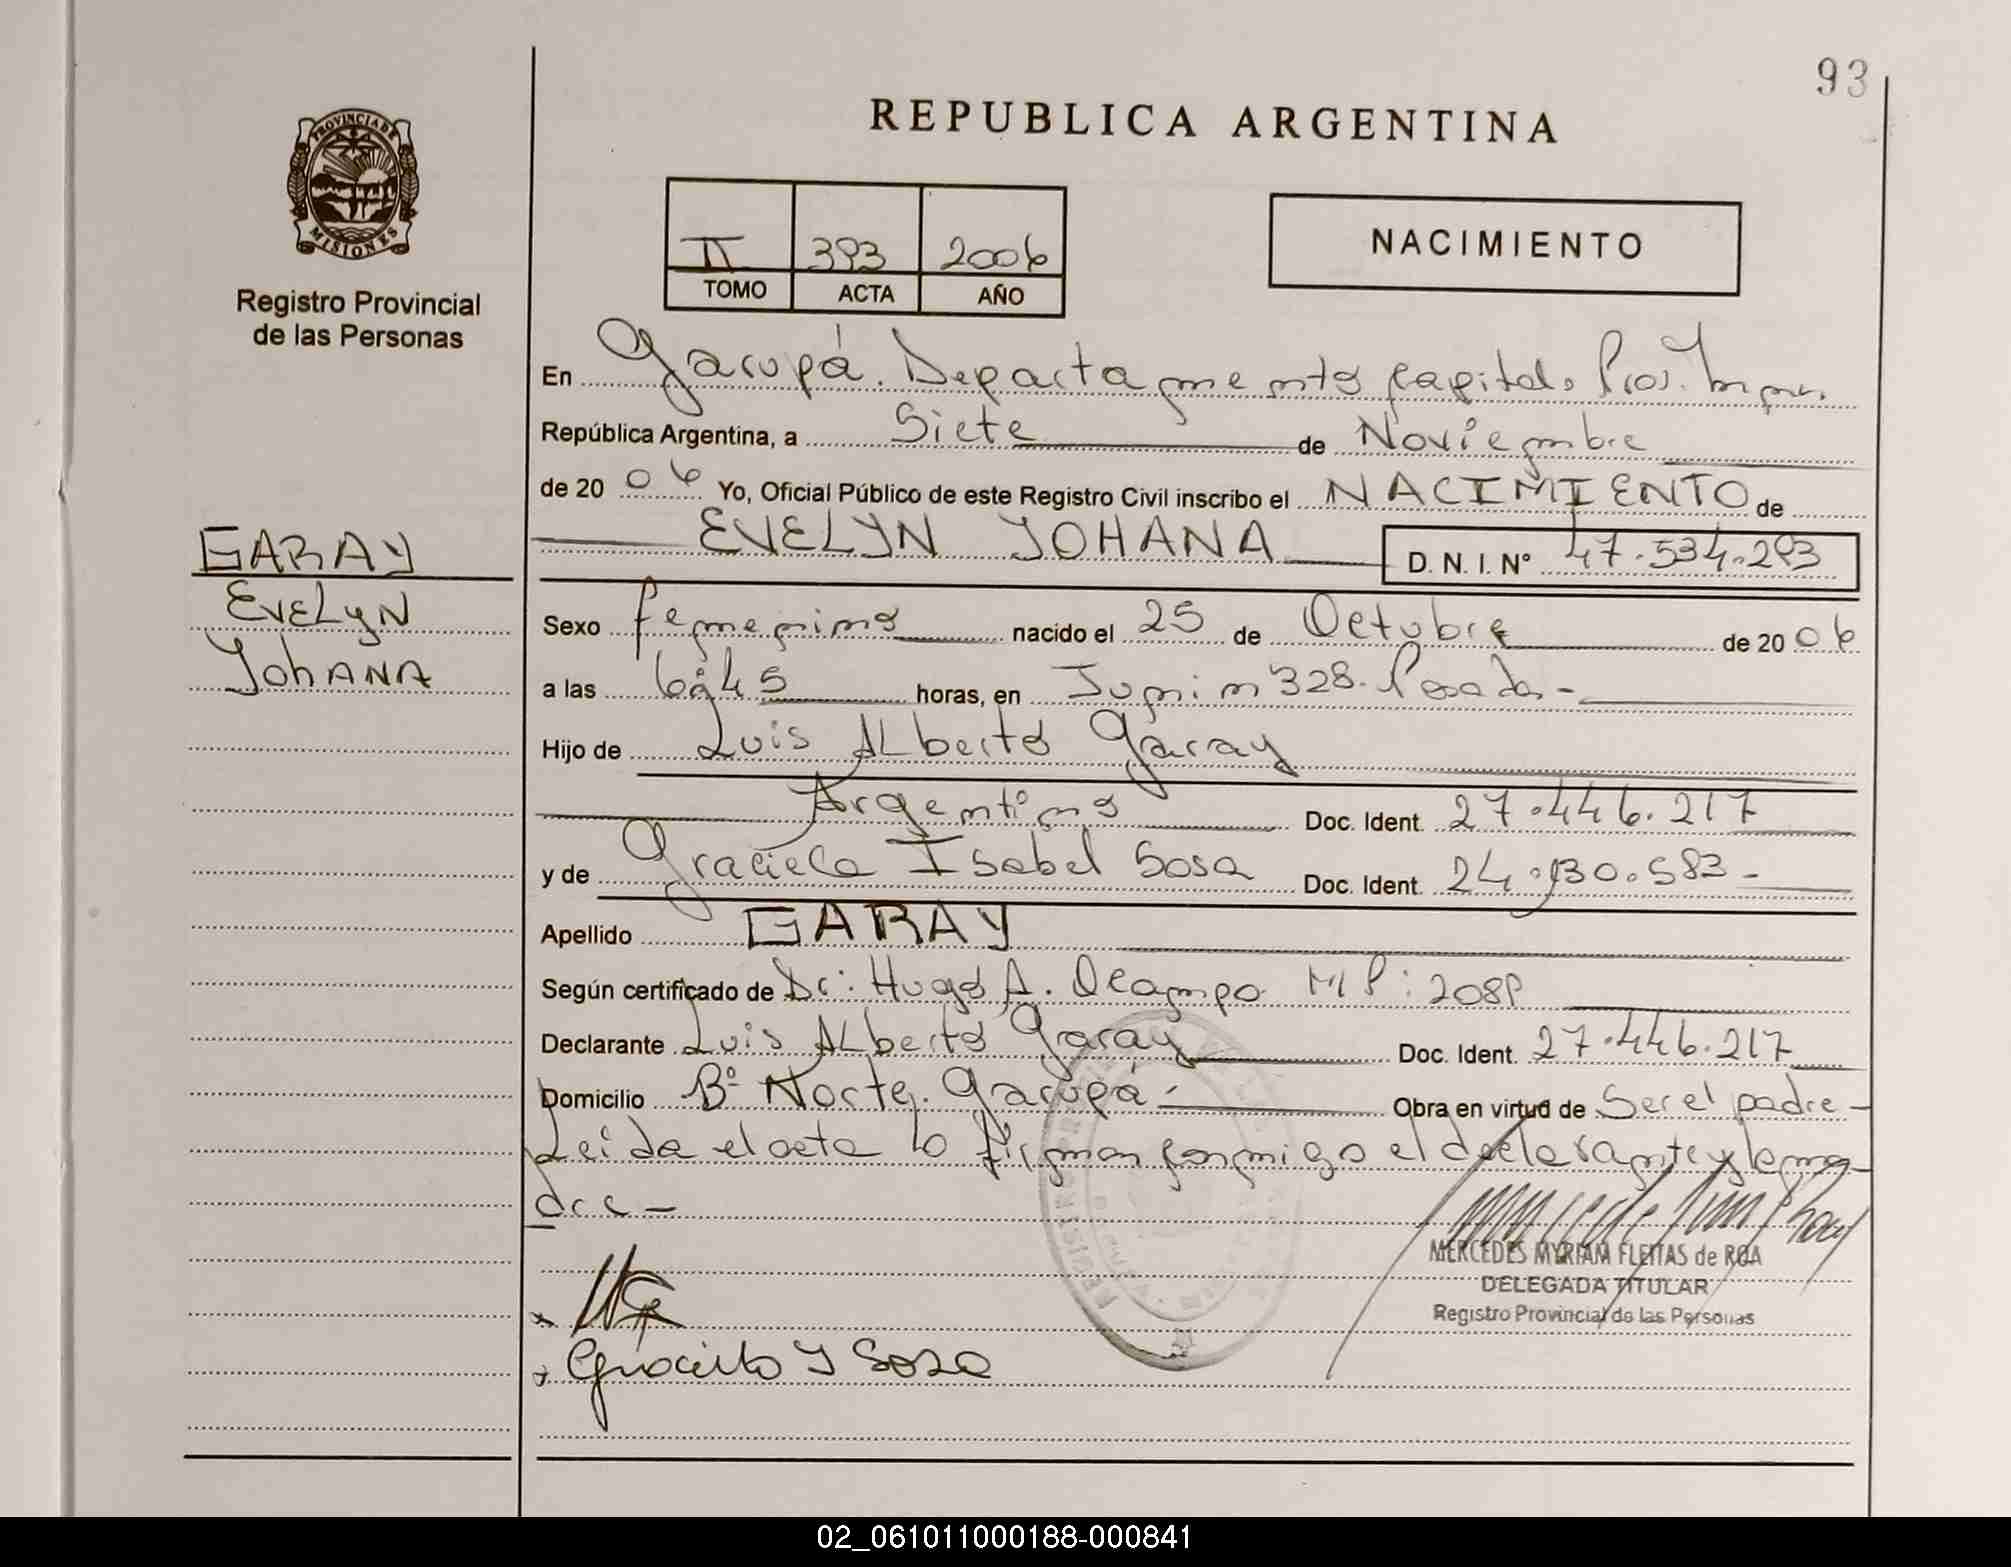 93
REPUBLICA ARGENTINA
PROVINCIA DE
MISIONES
Registro Provincial
de las Personas
II 393 2006
TOMO ACTA AÑO
NACIMIENTO
En Garupá. Departamento Capital. Prov. Mnes.
República Argentina, a Siete de Noviembre
de 20 06 Yo, Oficial Público de este Registro Civil inscribo el NACIMIENTO de
EVELYN YOHANA D. N. I. Nº 47.534.293
GARAY
EVELYN
YOHANA
Sexo femenino nacido el 25 de Octubre de 20 06
a las 6:45 horas, en Junin 328. Posadas-
Hijo de Luis Alberto Garay
Argentino Doc. Ident. 27.446.217
y de Graciela Isabel Sosa Doc. Ident. 24.130.583-
Apellido GARAY
Según certificado de Dr: Hugo A. Ocampo MP: 2089
Declarante Luis Alberto Garay Doc. Ident. 27.446.217
Domicilio Bº Norte. Garupá- Obra en virtud de Ser el padre-
Leída el acta lo firman conmigo el declarante y la ma-
dre-
MERCEDES MYRIAM FLEITAS de ROA
DELEGADA TITULAR
Registro Provincial de las Personas
Graciela Y Sosa
02_061011000188-000841